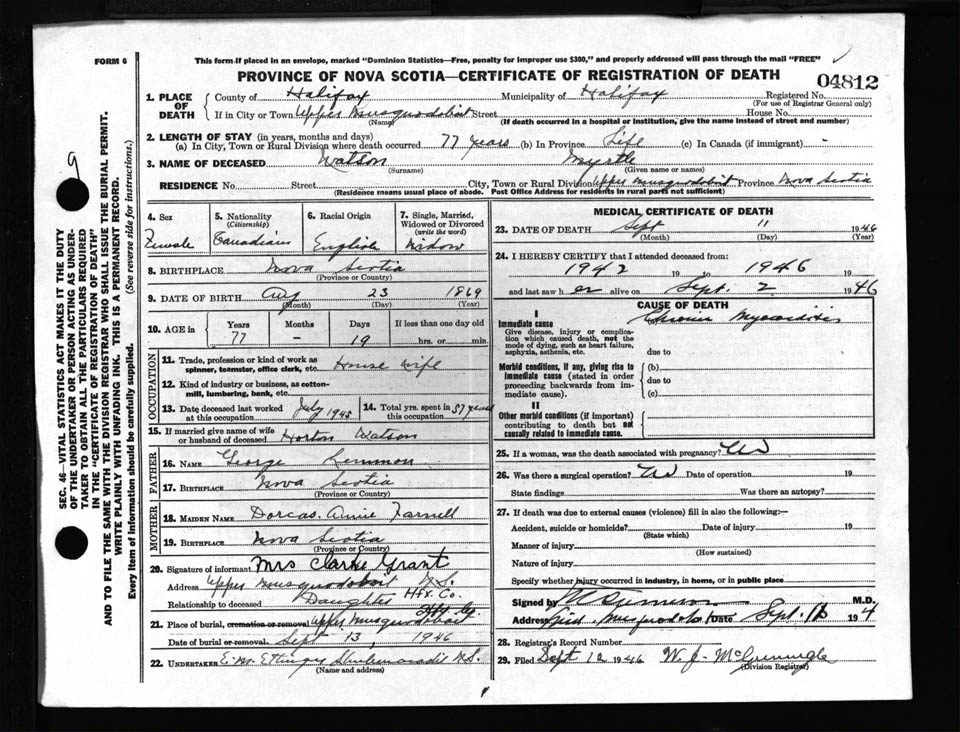 FORM 6
This form if placed in an envelope, marked "Dominion Statistics—Free, penalty for improper use $300," and properly addressed will pass through the mail "FREE"
PROVINCE OF NOVA SCOTIA—CERTIFICATE OF REGISTRATION OF DEATH
04812
1. PLACE OF DEATH
County of Halifax Municipality of Halifax Registered No.
(For use of Registrar General only)
If in City or Town Upper Musquodoboit Street House No.
(Name) (If death occurred in a hospital or institution, give the name instead of street and number)
2. LENGTH OF STAY (in years, months and days)
(a) In City, Town or Rural Division where death occurred 77 years (b) In Province Life (c) In Canada (if immigrant) -
3. NAME OF DECEASED Watson Myrtle
(Surname) (Given name or names)
RESIDENCE No. Street City, Town or Rural Division Upper Musquodoboit Province Nova Scotia
(Residence means usual place of abode. Post Office Address for residents in rural parts not sufficient)
4. Sex Female
5. Nationality (Citizenship) Canadian
6. Racial Origin English
7. Single, Married, Widowed or Divorced (write the word) Widow
8. BIRTHPLACE Nova Scotia
(Province or Country)
9. DATE OF BIRTH Aug 23 1869
(Month) (Day) (Year)
10. AGE in Years Months Days If less than one day old
77 - 19 hrs. or min.
OCCUPATION
11. Trade, profession or kind of work as spinner, teamster, office clerk, etc. House wife
12. Kind of industry or business, as cotton-mill, lumbering, bank, etc.
13. Date deceased last worked at this occupation July 1945
14. Total yrs. spent in this occupation 57 years
15. If married give name of wife or husband of deceased Horton Watson
FATHER
16. NAME George Lemmon
17. BIRTHPLACE Nova Scotia
(Province or Country)
MOTHER
18. MAIDEN NAME Dorcas. Annie Farnell
19. BIRTHPLACE Nova Scotia
(Province or Country)
20. Signature of informant Mrs Clarke Grant
Address Upper Musquodoboit N.S.
Relationship to deceased Daughter Hfx. Co.
21. Place of burial, cremation or removal Upper Musquodoboit Hfx Co.
Date of burial or removal Sept 13 1946
22. UNDERTAKER E. M. Ettinger Shubenacadie N.S.
(Name and address)
MEDICAL CERTIFICATE OF DEATH
23. DATE OF DEATH Sept 11 1946
(Month) (Day) (Year)
24. I HEREBY CERTIFY that I attended deceased from:
1942 19 to 1946 19
and last saw her alive on Sept. 2 1946
CAUSE OF DEATH
I
Immediate cause Chronic Myocarditis
Give disease, injury or complication which caused death, not the mode of dying, such as heart failure, asphyxia, asthenia, etc.
due to
Morbid conditions, if any, giving rise to immediate cause (stated in order proceeding backwards from immediate cause).
(b)
due to
(c)
II
Other morbid conditions (if important) contributing to death but not causally related to immediate cause.
25. If a woman, was the death associated with pregnancy? No
26. Was there a surgical operation? No Date of operation 19
State findings Was there an autopsy?
27. If death was due to external causes (violence) fill in also the following:—
Accident, suicide or homicide? Date of injury 19
(State which)
Manner of injury
(How sustained)
Nature of injury
Specify whether injury occurred in industry, in home, or in public place
Signed by M.D.
Address Musquodoboit Date Sept. 194
28. Registrar's Record Number
29. Filed Sept 12 1946 W. J.
(Division Registrar)
SEC. 46—VITAL STATISTICS ACT MAKES IT THE DUTY
OF THE UNDERTAKER OR PERSON ACTING AS UNDER-
TAKER TO OBTAIN ALL THE PARTICULARS REQUIRED
IN THE "CERTIFICATE OF REGISTRATION OF DEATH"
AND TO FILE THE SAME WITH THE DIVISION REGISTRAR WHO SHALL ISSUE THE BURIAL PERMIT.
WRITE PLAINLY WITH UNFADING INK. THIS IS A PERMANENT RECORD.
Every item of information should be carefully supplied. (See reverse side for instructions.)
9